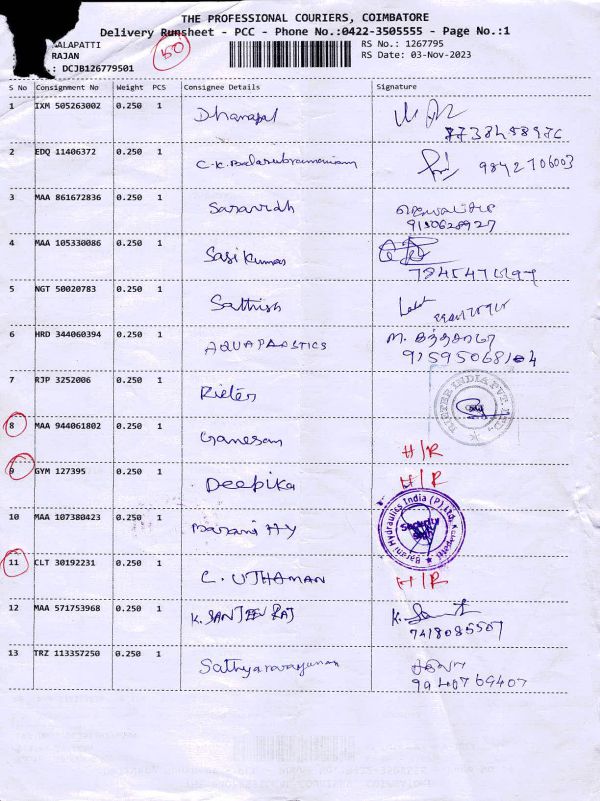 THE PROFESSIONAL COURIERS, COIMBATORE
Delivery Runsheet - PCC - Phone No.:0422-3505555 - Page No.:1
ALAPATTI 150 RS No.: 1267795
RAJAN RS Date: 03-Nov-2023
: DCJB126779501
S No Consignment No Weight PCS Consignee Details Signature
1 IXM 505263002 0.250 1 Dhanapal
2 EDQ 11406372 0.250 1 C.K. Balasubramaniam 9842706003
3 MAA 861672836 0.250 1
9150628927
4 MAA 105330086 0.250 1 Sasi Kumar
5 NGT 50020783 0.250 1 Sathish
6 HRD 344060394 0.250 1 AQUAPLASTICS
7 RJP 3252006 0.250 1 Rieter
RIETER INDIA PVT. LTD.
8 MAA 944061802 0.250 1 Ganesan H/R
9 GYM 127395 0.250 1 Deepika H/R
10 MAA 107380423 0.250 1 Barani HY
Barani Hydraulics India (P) Ltd. Security
11 CLT 30192231 0.250 1 C. UTHAMAN H/R
12 MAA 571753968 0.250 1 K. SANJEEV RAJ K.
7418085507
13 TRZ 113357250 0.250 1 Sathyanarayanan
9940769407